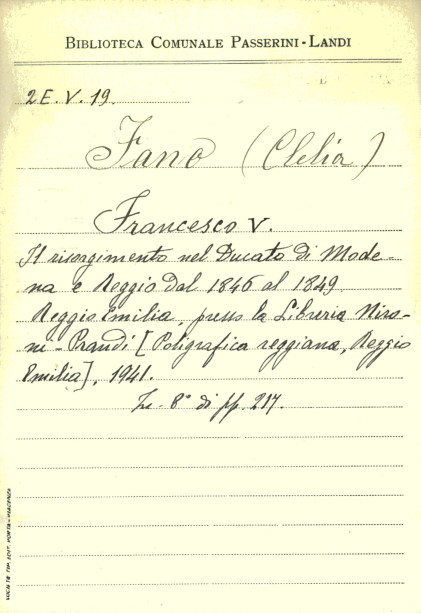 BIBLIOTECA COMUNALE PASSERINI-LANDI
2E.V.19.
Fano (Clelia)
Francesco V.
Il risorgimento nel Ducato di Mode-
na e Reggio dal 1846 al 1849.
Reggio Emilia, presso la Libreria Niro-
ni-Prandi [Poligrafica reggiana, Reggio
Emilia], 1941.
In-8° di pp. 217.